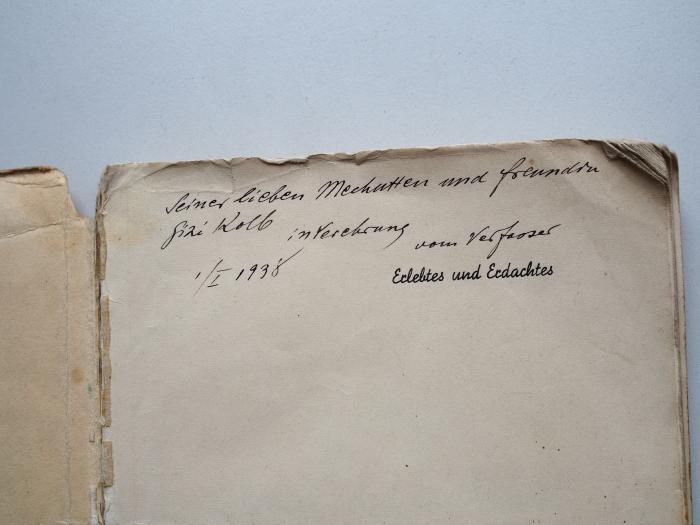 Seiner lieben Mechutten und Freundin
Gizi Kolb in Verehrung vom Verfasser
1/I 1938
Erlebtes und Erdachtes